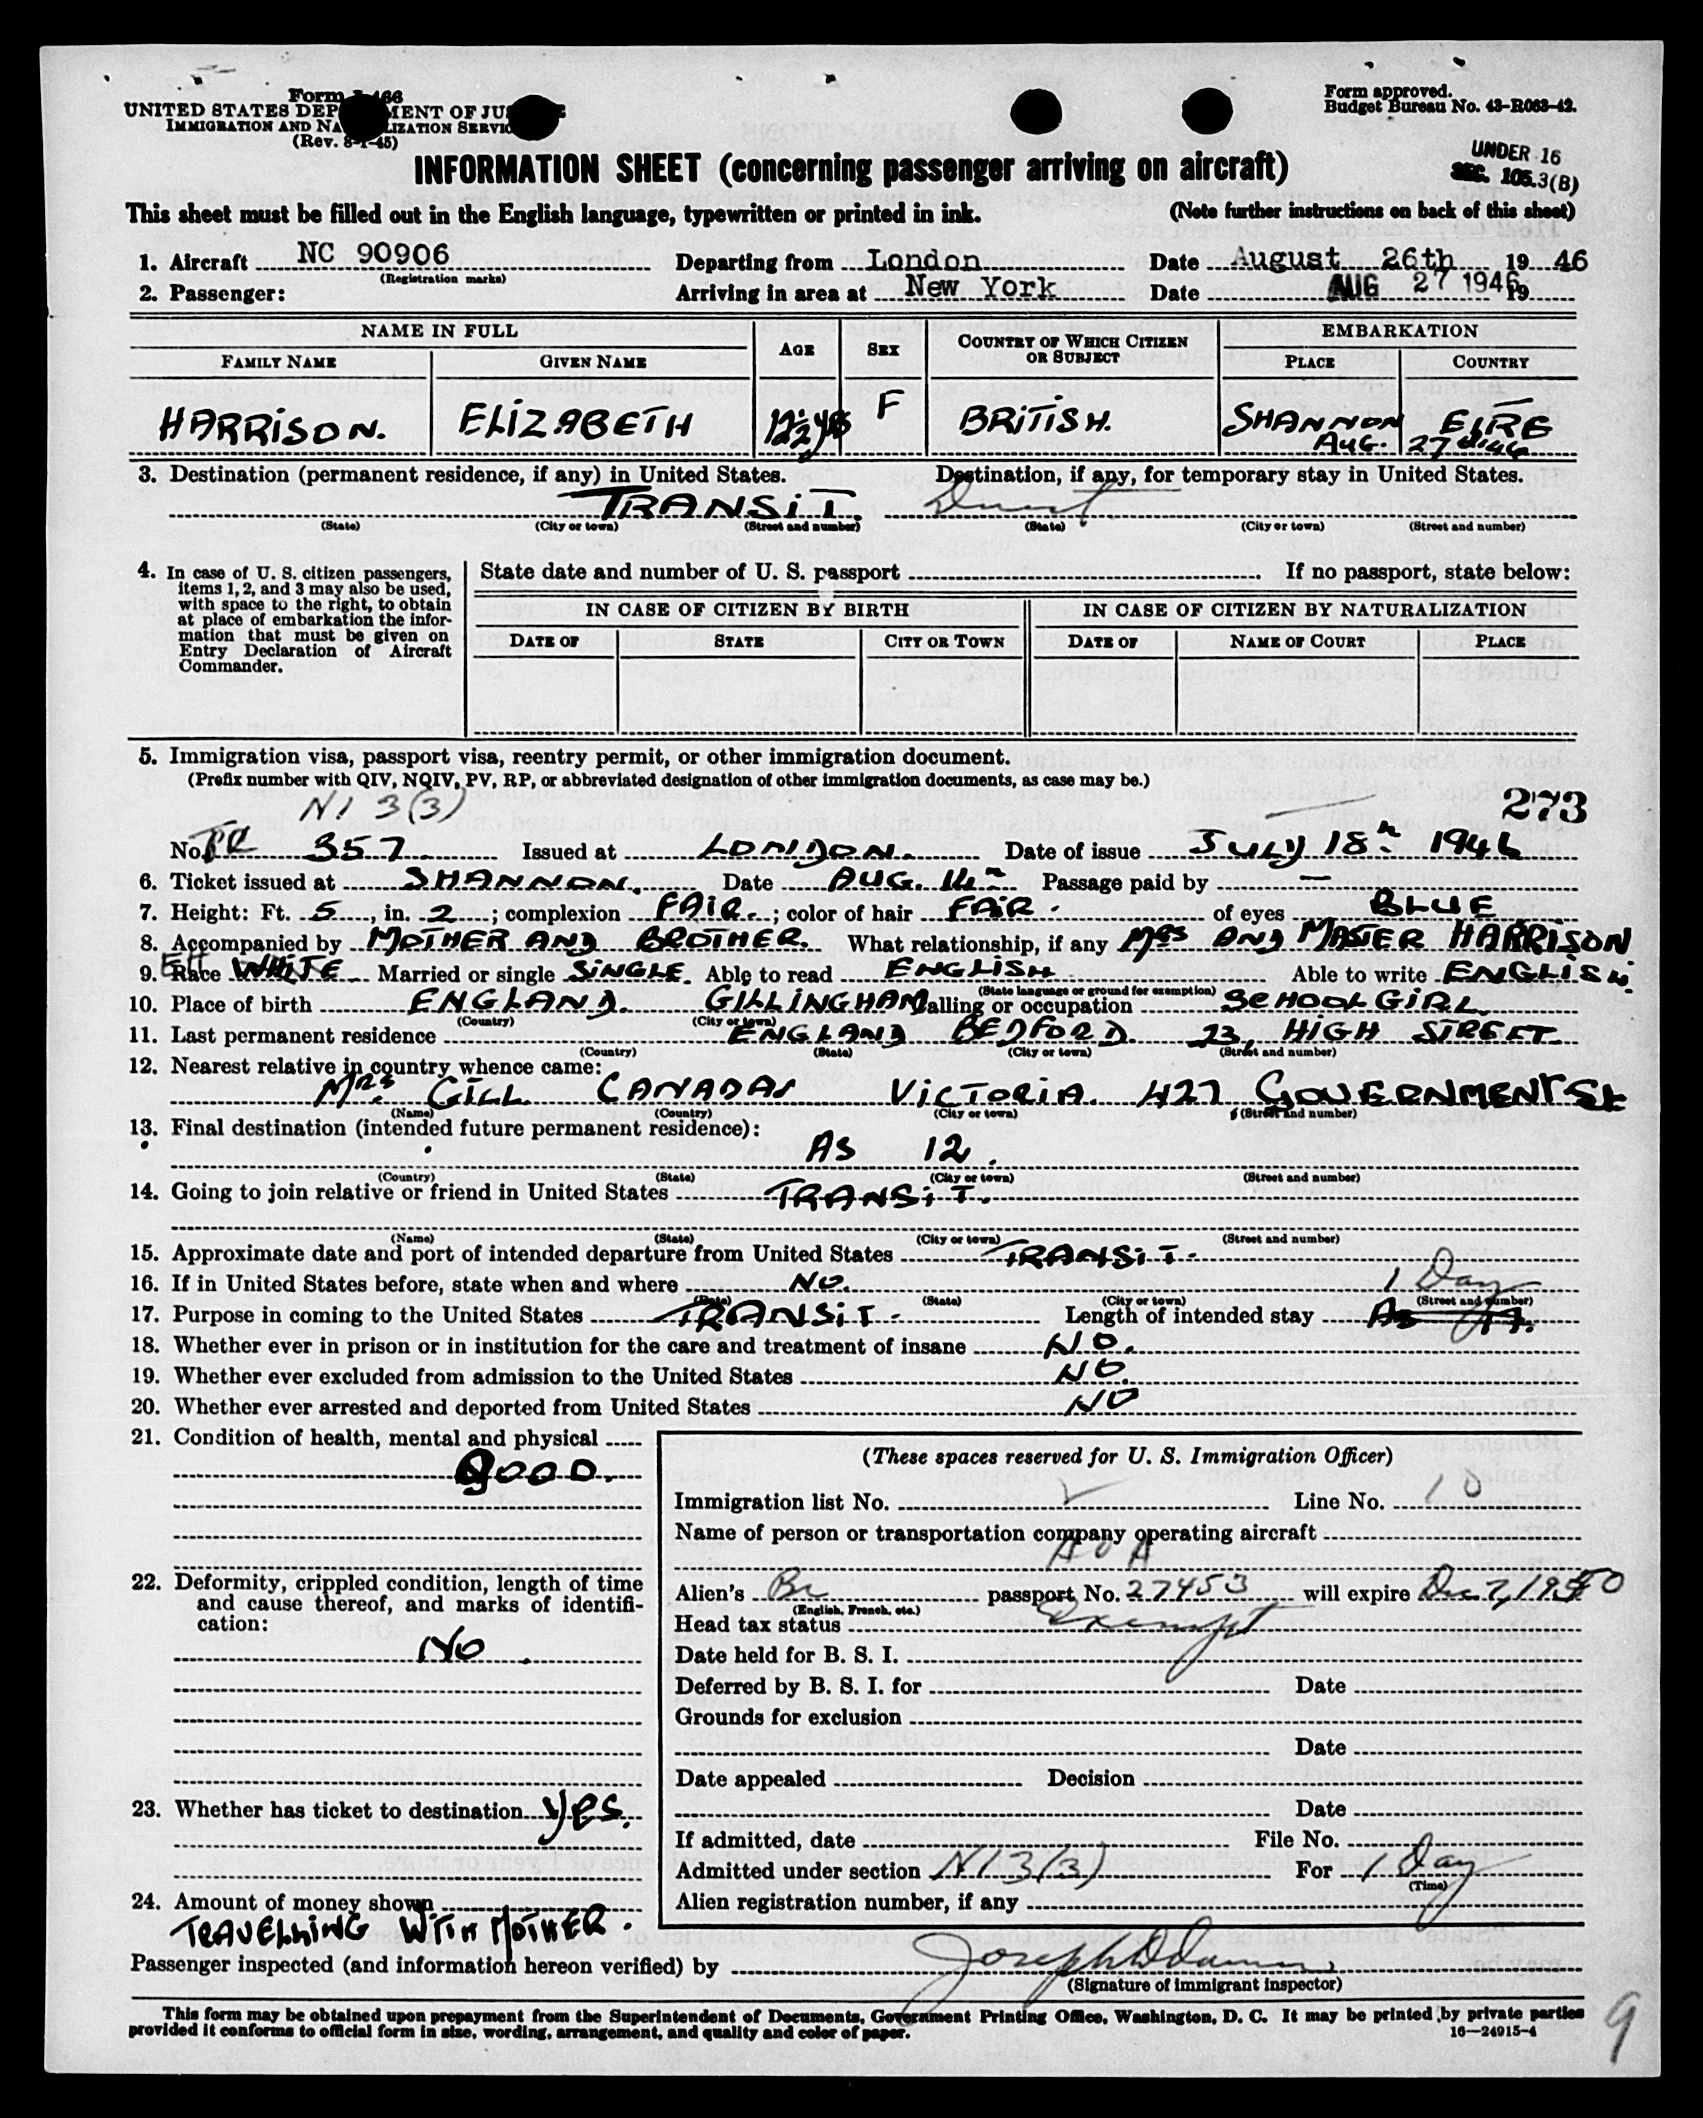 Form I-466
UNITED STATES DEPARTMENT OF JUSTICE
IMMIGRATION AND NATURALIZATION SERVICE
(Rev. 8-1-45)
Form approved.
Budget Bureau No. 43-R063-42.
UNDER 16
SEC. 105.3(B)
INFORMATION SHEET (concerning passenger arriving on aircraft)
This sheet must be filled out in the English language, typewritten or printed in ink. (Note further instructions on back of this sheet)
1. Aircraft NC 90906 Departing from London Date August 26th 19 46
(Registration marks)
2. Passenger: Arriving in area at New York Date AUG 27 1946 19
NAME IN FULL AGE SEX COUNTRY OF WHICH CITIZEN OR SUBJECT EMBARKATION
FAMILY NAME GIVEN NAME PLACE COUNTRY
HARRISON. ELIZABETH 12½ yrs F BRITISH. SHANNON EIRE
AUG. 27th 46
3. Destination (permanent residence, if any) in United States. Destination, if any, for temporary stay in United States.
TRANSIT.
(State) (City or town) (Street and number) (State) (City or town) (Street and number)
4. In case of U. S. citizen passengers, items 1, 2, and 3 may also be used, with space to the right, to obtain at place of embarkation the information that must be given on Entry Declaration of Aircraft Commander.
State date and number of U. S. passport . If no passport, state below:
IN CASE OF CITIZEN BY BIRTH IN CASE OF CITIZEN BY NATURALIZATION
DATE OF STATE CITY OR TOWN DATE OF NAME OF COURT PLACE
5. Immigration visa, passport visa, reentry permit, or other immigration document.
(Prefix number with QIV, NQIV, PV, RP, or abbreviated designation of other immigration documents, as case may be.)
NI 3(3) 273
No. TR 357 Issued at LONDON. Date of issue JULY 18th 1946
6. Ticket issued at SHANNON. Date AUG. 14th Passage paid by —
7. Height: Ft. 5, in. 2; complexion FAIR.; color of hair FAIR. of eyes BLUE
8. Accompanied by MOTHER AND BROTHER. What relationship, if any MRS AND MASTER HARRISON
9. Race WHITE Married or single SINGLE. Able to read ENGLISH Able to write ENGLISH.
(State language or ground for exemption)
10. Place of birth ENGLAND. GILLINGHAM Calling or occupation SCHOOLGIRL
(Country) (City or town)
11. Last permanent residence ENGLAND BEDFORD. 23, HIGH STREET
(Country) (State) (City or town) (Street and number)
12. Nearest relative in country whence came:
MRS. GILL CANADA VICTORIA. 427 GOVERNMENT St
(Name) (Country) (City or town) (Street and number)
13. Final destination (intended future permanent residence):
AS 12.
(Country) (State) (City or town) (Street and number)
14. Going to join relative or friend in United States TRANSIT.
(Name) (State) (City or town) (Street and number)
15. Approximate date and port of intended departure from United States TRANSIT.
16. If in United States before, state when and where NO.
(Date) (State) (City or town) (Street and number)
1 Day
17. Purpose in coming to the United States TRANSIT. Length of intended stay
18. Whether ever in prison or in institution for the care and treatment of insane NO.
19. Whether ever excluded from admission to the United States NO.
20. Whether ever arrested and deported from United States NO
21. Condition of health, mental and physical
GOOD.
22. Deformity, crippled condition, length of time and cause thereof, and marks of identification:
No.
23. Whether has ticket to destination yes.
24. Amount of money shown
TRAVELLING WITH MOTHER.
(These spaces reserved for U. S. Immigration Officer)
Immigration list No. Line No. 10
Name of person or transportation company operating aircraft
AOA
Alien's Br passport No. 27453 will expire Dec 7, 1950
(English, French, etc.)
Head tax status exempt
Date held for B. S. I.
Deferred by B. S. I. for Date
Grounds for exclusion
Date
Date appealed Decision
Date
If admitted, date File No.
Admitted under section NI 3(3) For 1 Day
(Time)
Alien registration number, if any
Passenger inspected (and information hereon verified) by Joseph
(Signature of immigrant inspector)
This form may be obtained upon prepayment from the Superintendent of Documents, Government Printing Office, Washington, D. C. It may be printed by private parties
provided it conforms to official form in size, wording, arrangement, and quality and color of paper.
16—24915-4
9